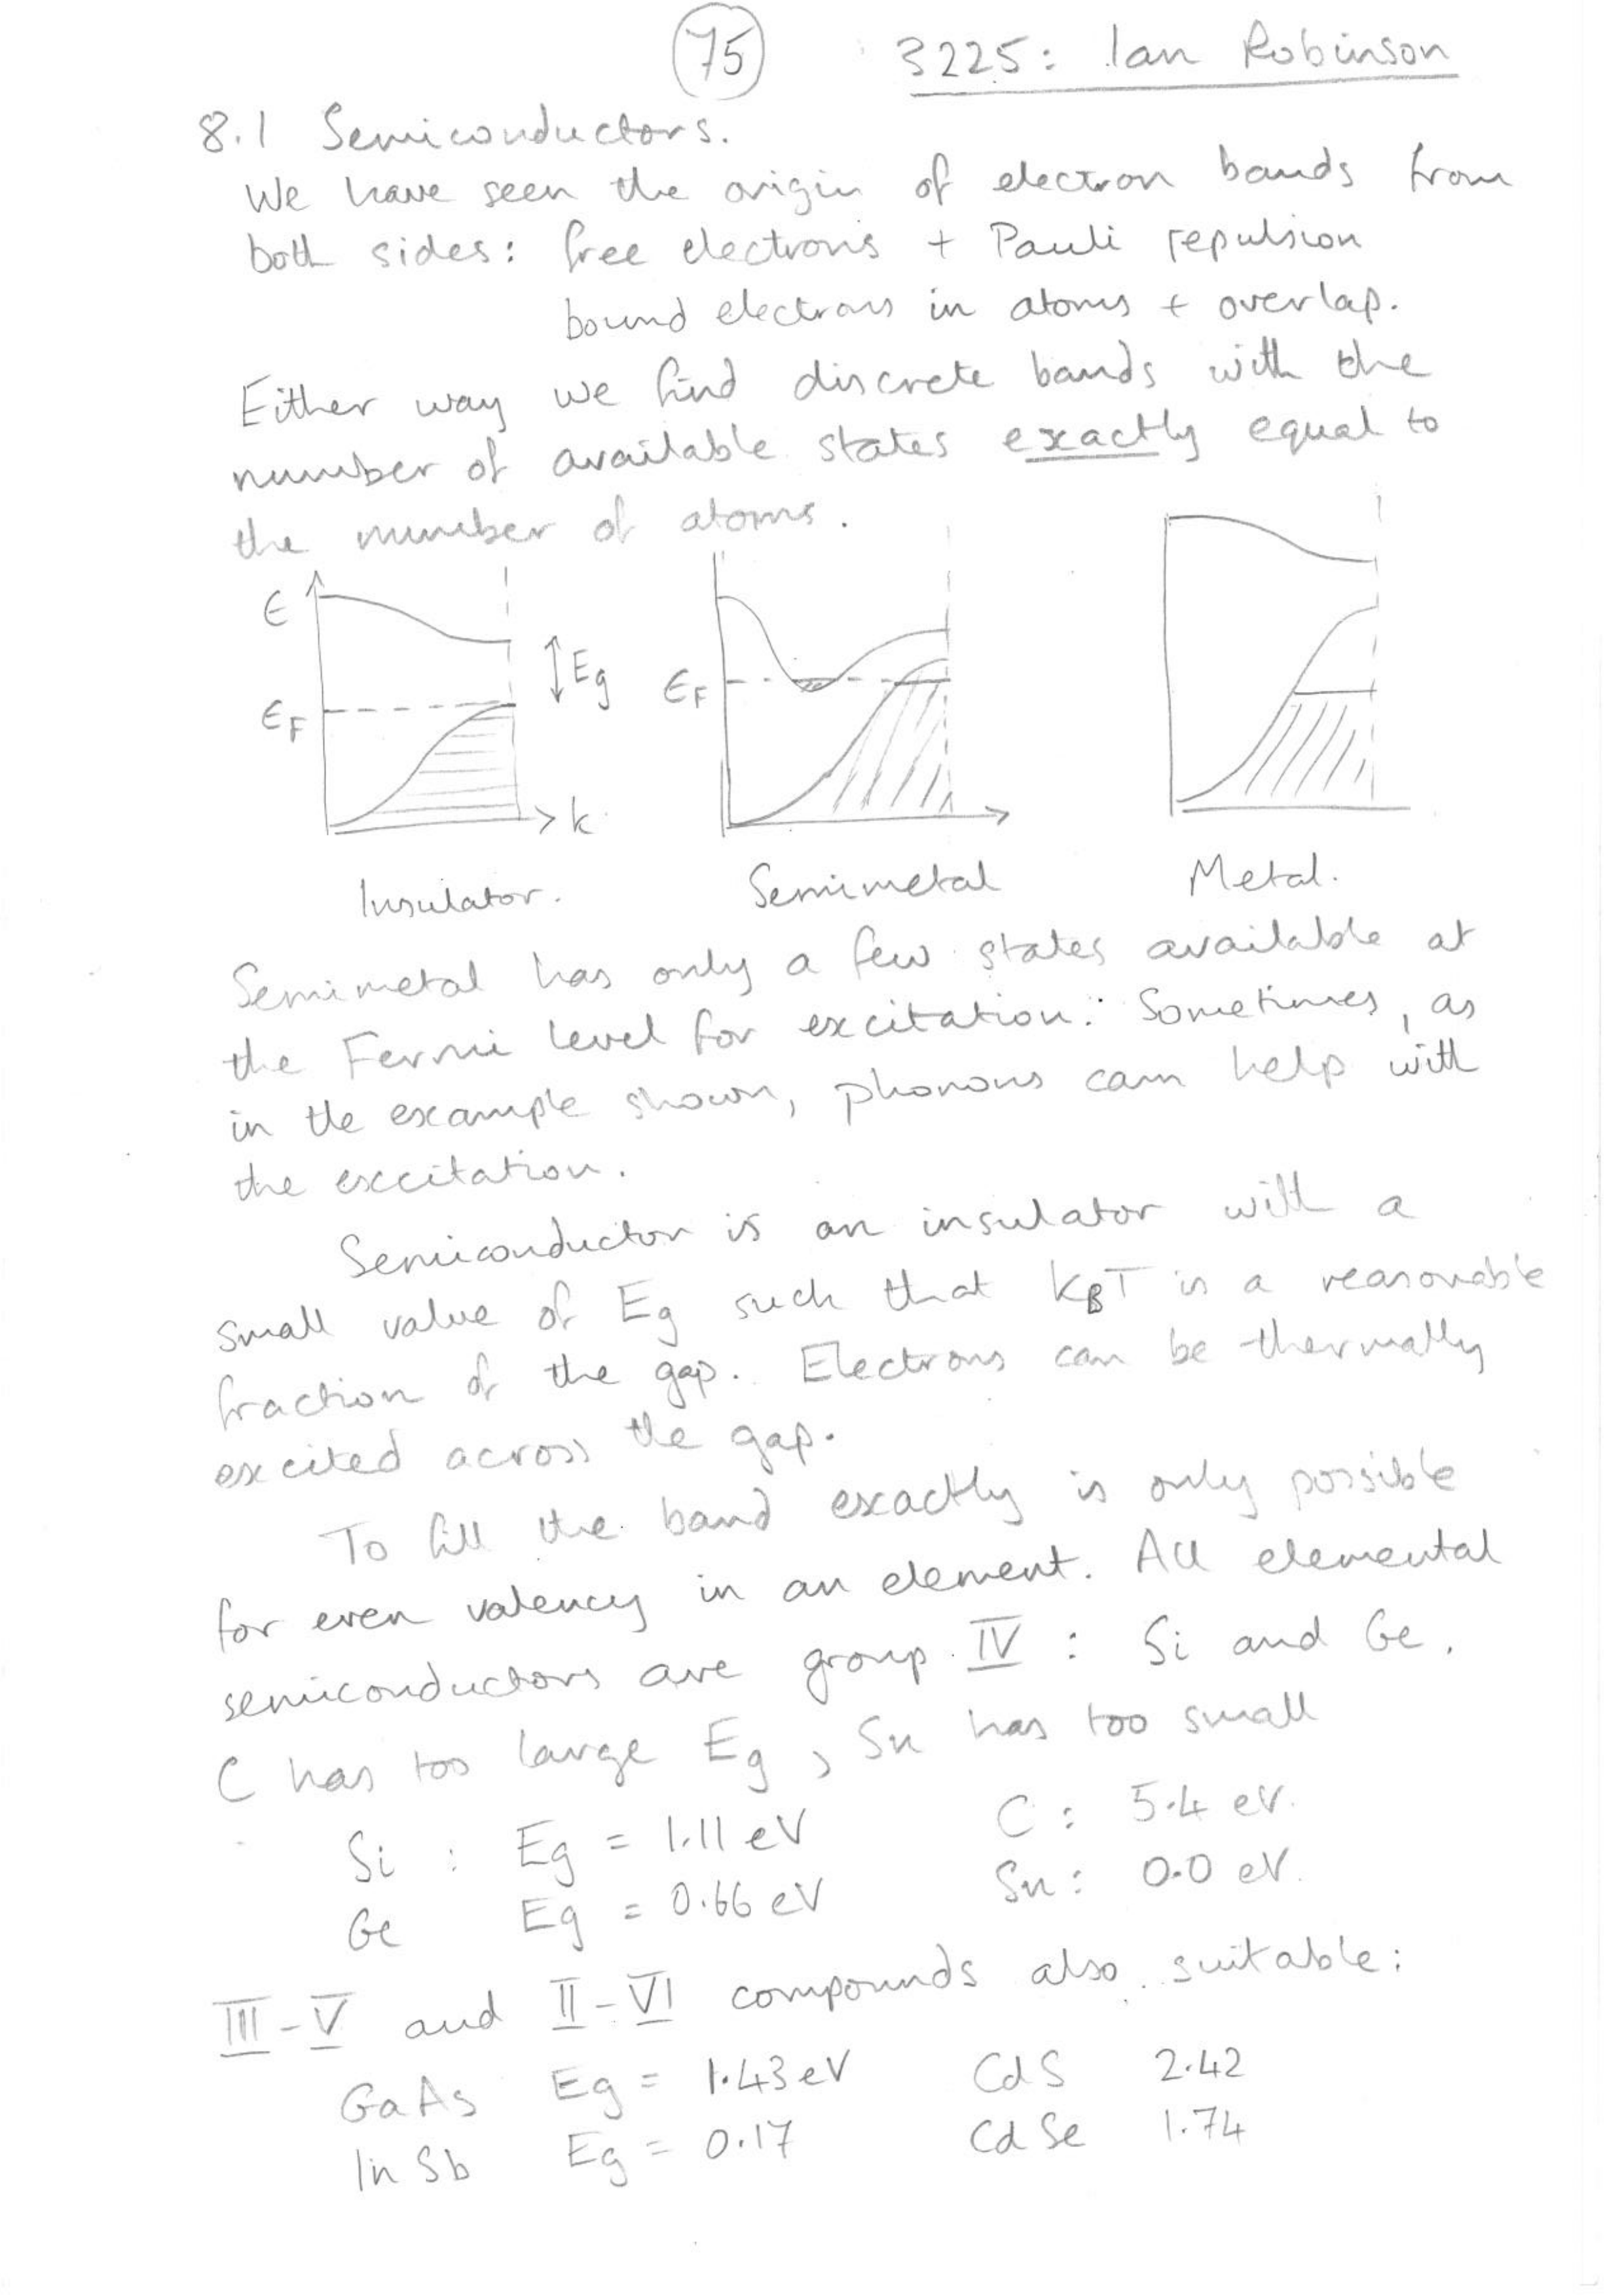 75
3225: Ian Robinson
8.1 Semiconductors.
We have seen the origin of electron bands from
both sides: free electrons + Pauli repulsion
bound electrons in atoms + overlap.
Either way we find discrete bands with the
number of available states exactly equal to
the number of atoms.
ϵ
Eg
ϵF
k
ϵF
Insulator.
Semimetal
Metal.
Semimetal has only a few states available at
the Fermi level for excitation. Sometimes, as
in the example shown, phonons can help with
the excitation.
Semiconductor is an insulator with a
small value of Eg such that kBT is a reasonable
fraction of the gap. Electrons can be thermally
excited across the gap.
To fill the band exactly is only possible
for even valency in an element. All elemental
semiconductors are group IV : Si and Ge.
C has too large Eg, Sn has too small
Si : Eg = 1.11 eV C : 5.4 eV.
Ge Eg = 0.66 eV Sn : 0.0 eV.
III-V and II-VI compounds also suitable:
GaAs Eg = 1.43 eV CdS 2.42
InSb Eg = 0.17 CdSe 1.74